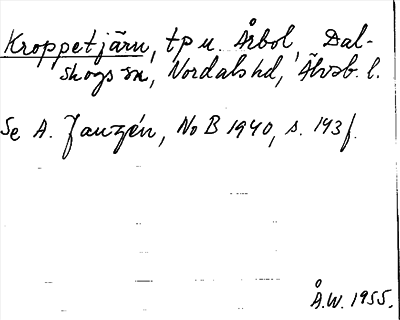 Kroppetjärn, tp u. Årbol, Dal-
skogs sn, Nordals hd, Älvsb. l.
Se A. Janzén, No B 1940, s. 143 f.
Å.W. 1955.